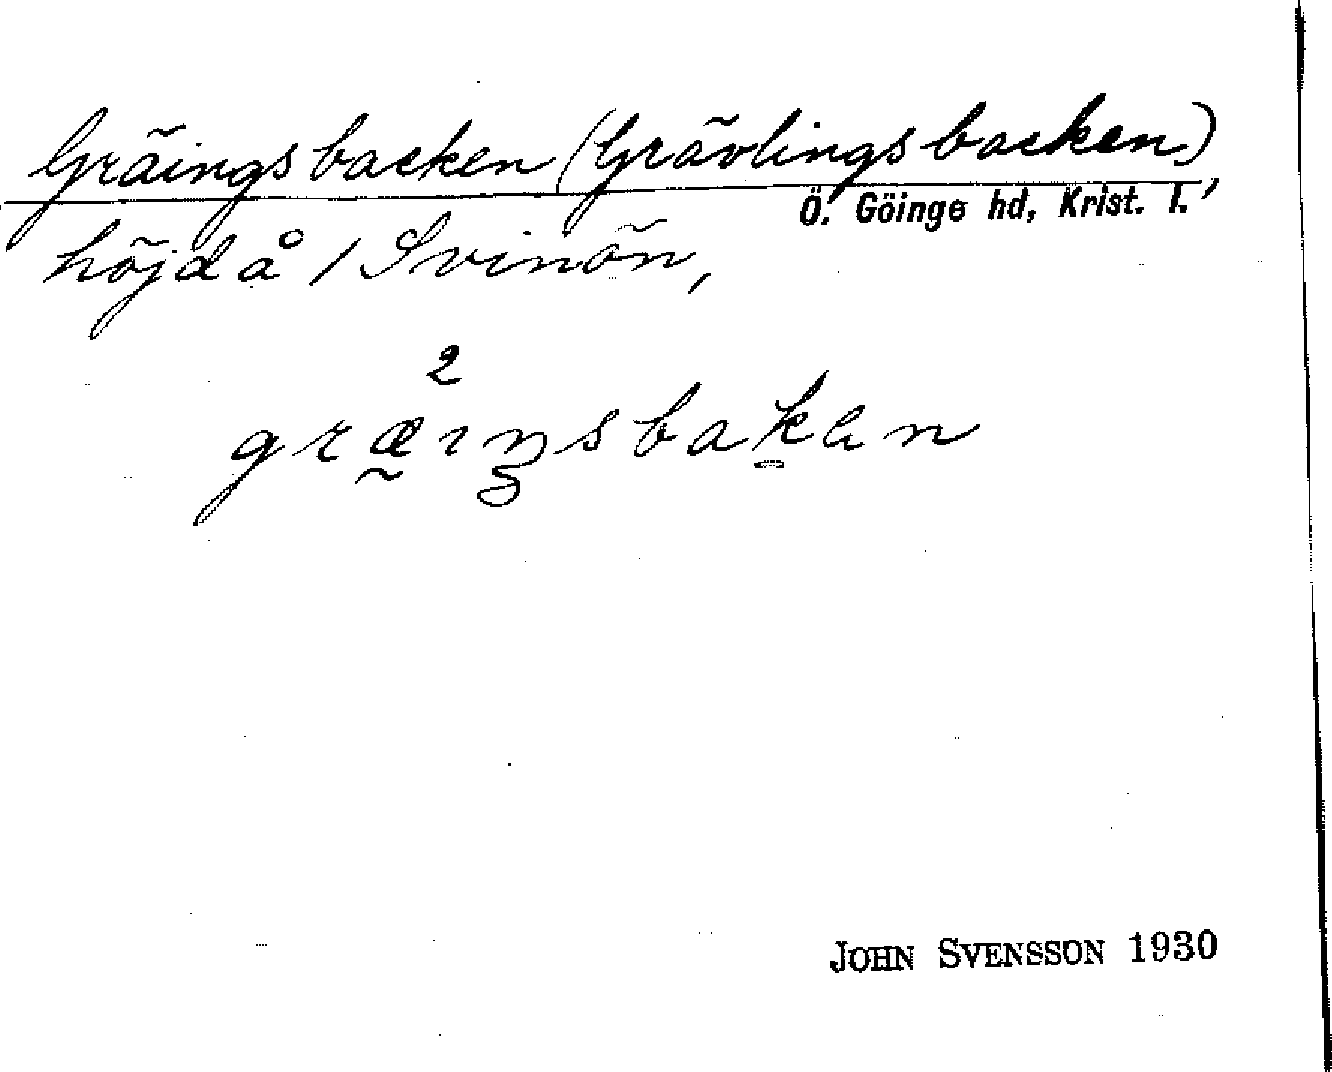 Gräingsbacken (Grävlingsbacken),
Ö. Göinge hd, Krist. l.
höjd å 1 Svinön,
2
græıŋsbakən
JOHN SVENSSON 1930